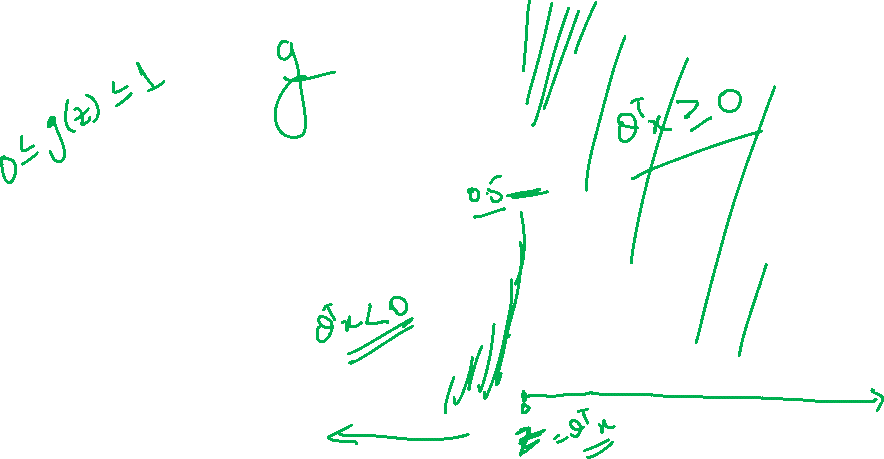 0 ≤ g(z) ≤ 1
g
θᵀx ≥ 0
0.5
θᵀx < 0
0
z = θᵀx